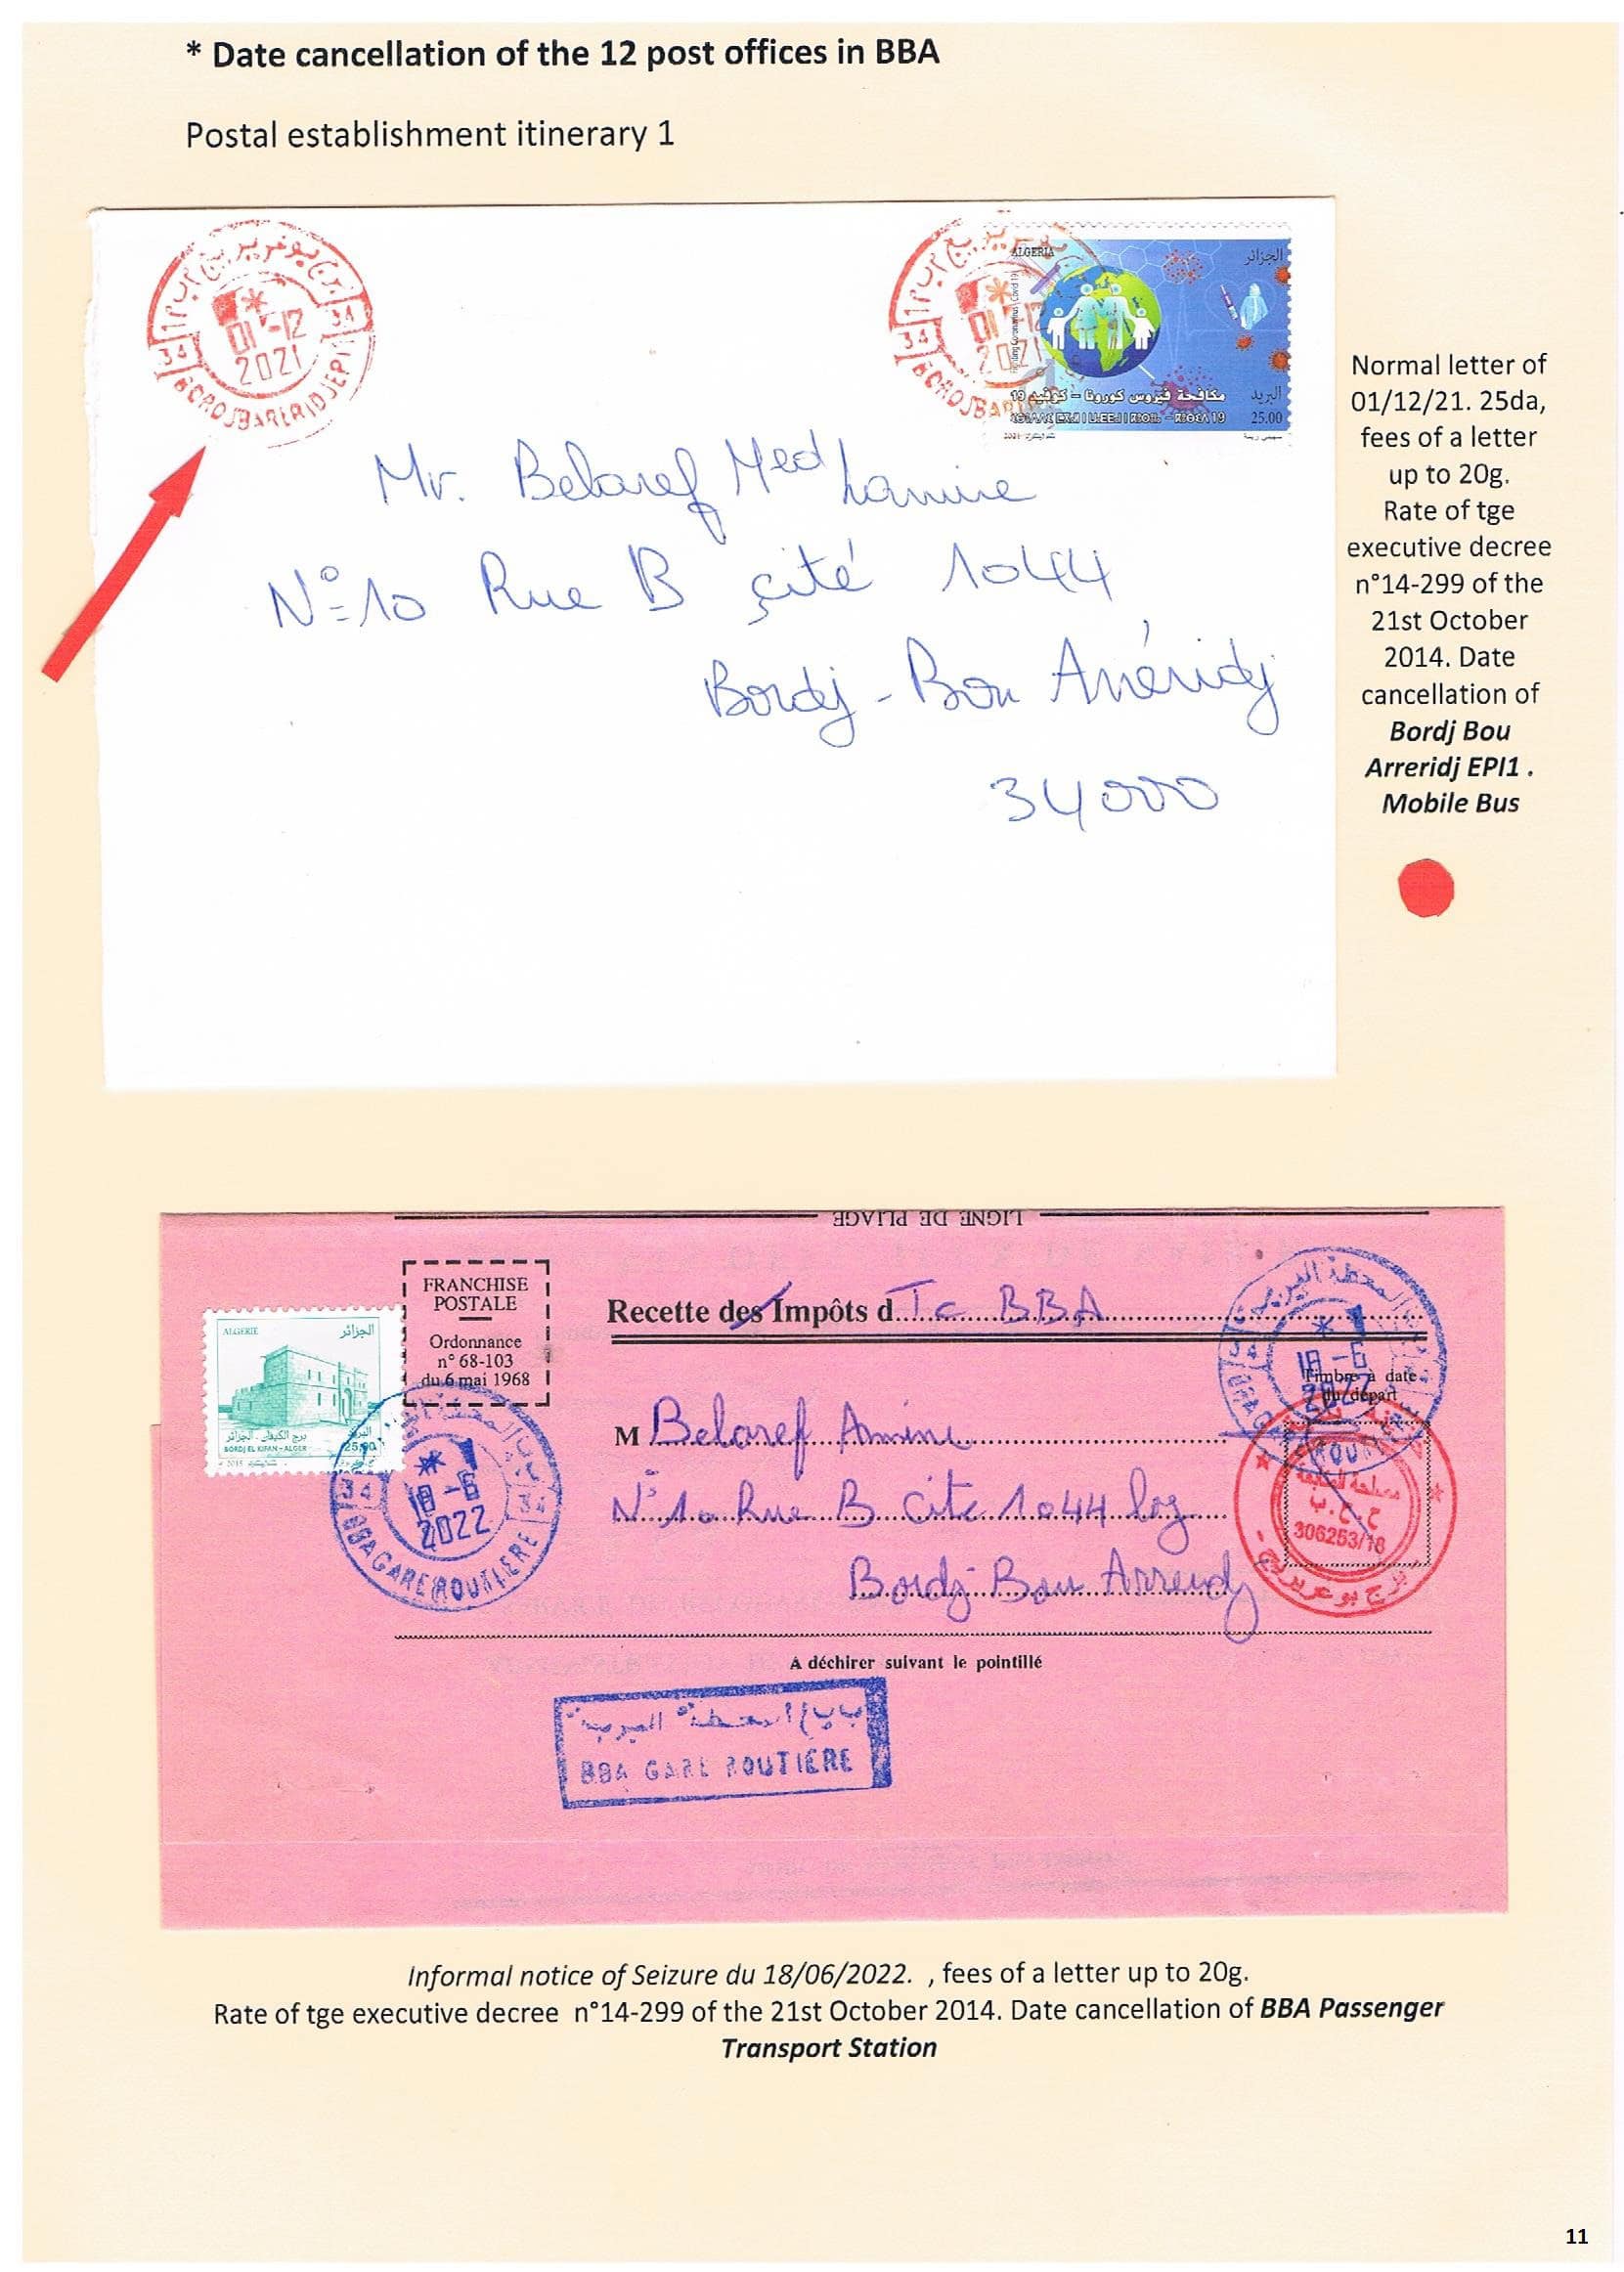 * Date cancellation of the 12 post offices in BBA
Postal establishment itinerary 1
34 34
01-12
2021
34
01-12
2021
ALGERIA الجزائر
مكافحة فيروس كورونا - كوفيد 19
البريد
25.00
Mr. Belaref Med Lamine
N°=10 Rue B çité 1044
Bordj-Bou Arréridj
34000
Normal letter of
01/12/21. 25da,
fees of a letter
up to 20g.
Rate of tge
executive decree
n°14-299 of the
21st October
2014. Date
cancellation of
Bordj Bou
Arreridj EPI1 .
Mobile Bus
LIGNE DE PLIAGE
FRANCHISE
POSTALE
Ordonnance
n° 68-103
du 6 mai 1968
ALGERIE الجزائر
برج الكيفان - الجزائر البريد
BORDJ EL KIFAN - ALGER 25.00
Recette des Impôts d Tc BBA
34
18-6
2022
Timbre à date
du départ
M Belaref Amine
N° 10 Rue B Cite 1044 log
Bordj Bou Arreridj
34 34
18-6
2022
BBA GARE ROUTIERE
306253/18
برج بوعريريج
A déchirer suivant le pointillé
BBA GARE ROUTIERE
Informal notice of Seizure du 18/06/2022. , fees of a letter up to 20g.
Rate of tge executive decree n°14-299 of the 21st October 2014. Date cancellation of BBA Passenger
Transport Station
11